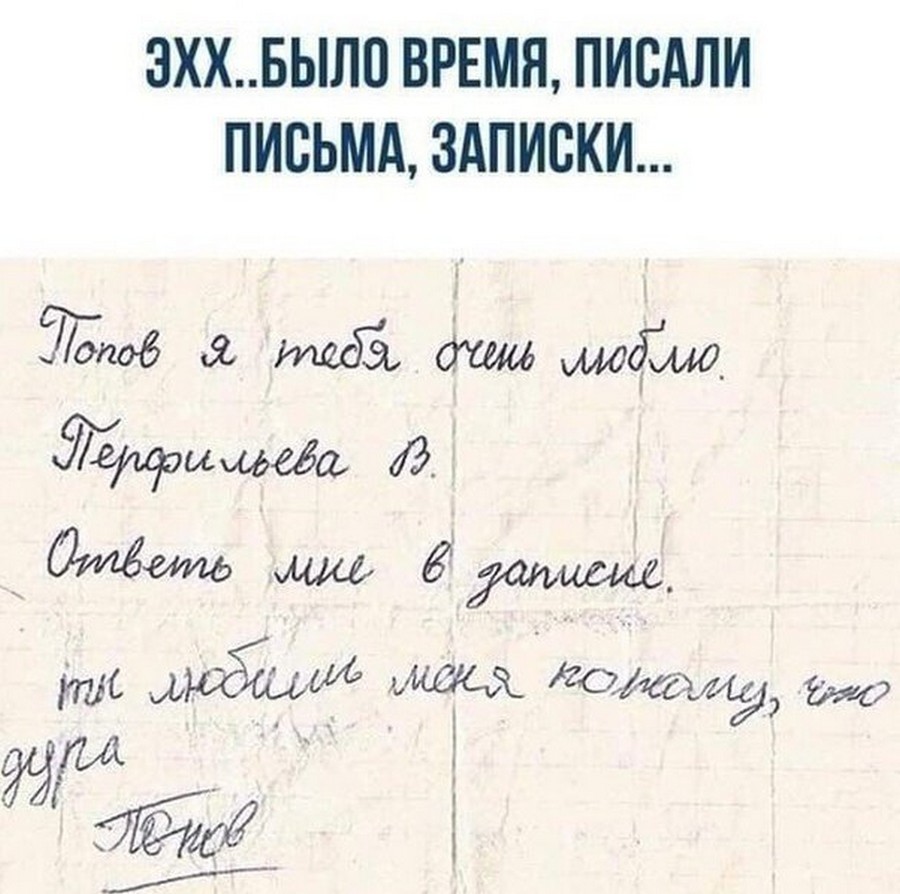 ЭХХ..БЫЛО ВРЕМЯ, ПИСАЛИ
ПИСЬМА, ЗАПИСКИ...
Попов я тебя очень люблю.
Перфильева В.
Ответь мне в записке.
ты любишь меня потому, что
дура
Попов